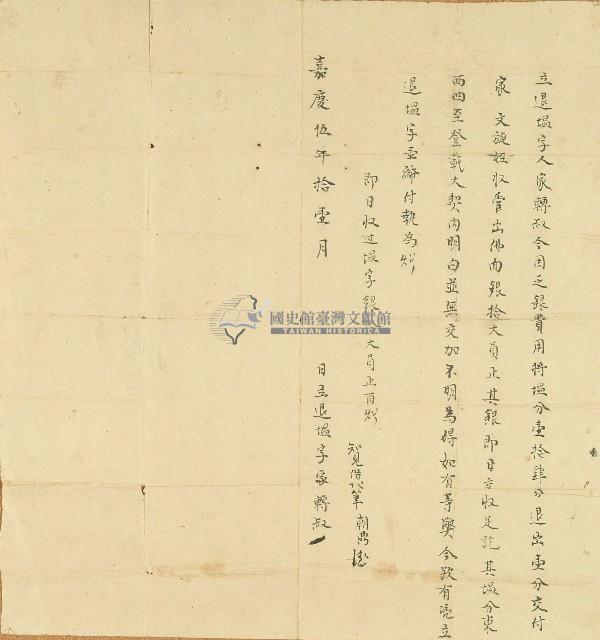 立退塭字人家轉叔今因乏銀費用將塭分壹拾肆分退出壹分交付
家文旋姪收管出佛面銀拾大員正其銀即日立收足訖其塭分東
西四至登載大契內明白並無交加不明為碍如有等獘今欲有憑立
退塭字壹紙付執為炤
即日收过塭字銀大員正再炤
知見代筆朝
嘉慶伍年拾壹月 日立退塭字家轉叔
國史館臺灣文獻館
TAIWAN HISTORICA